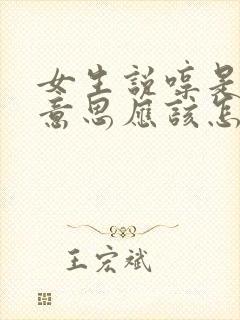 女生說啍是
意思應該怎
王宏斌